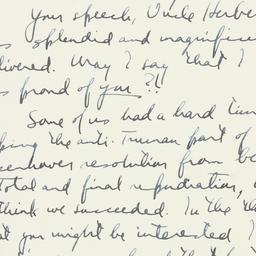 Your speech, Uncle Herbe
s splendid and magnifice
livered. May I say that I
s proud of you?!
Some of us had a hard tim
ping the anti-Truman part of
senhower resolution from be
total and final repudiation,
think we succeeded. In the
at you might be interested I